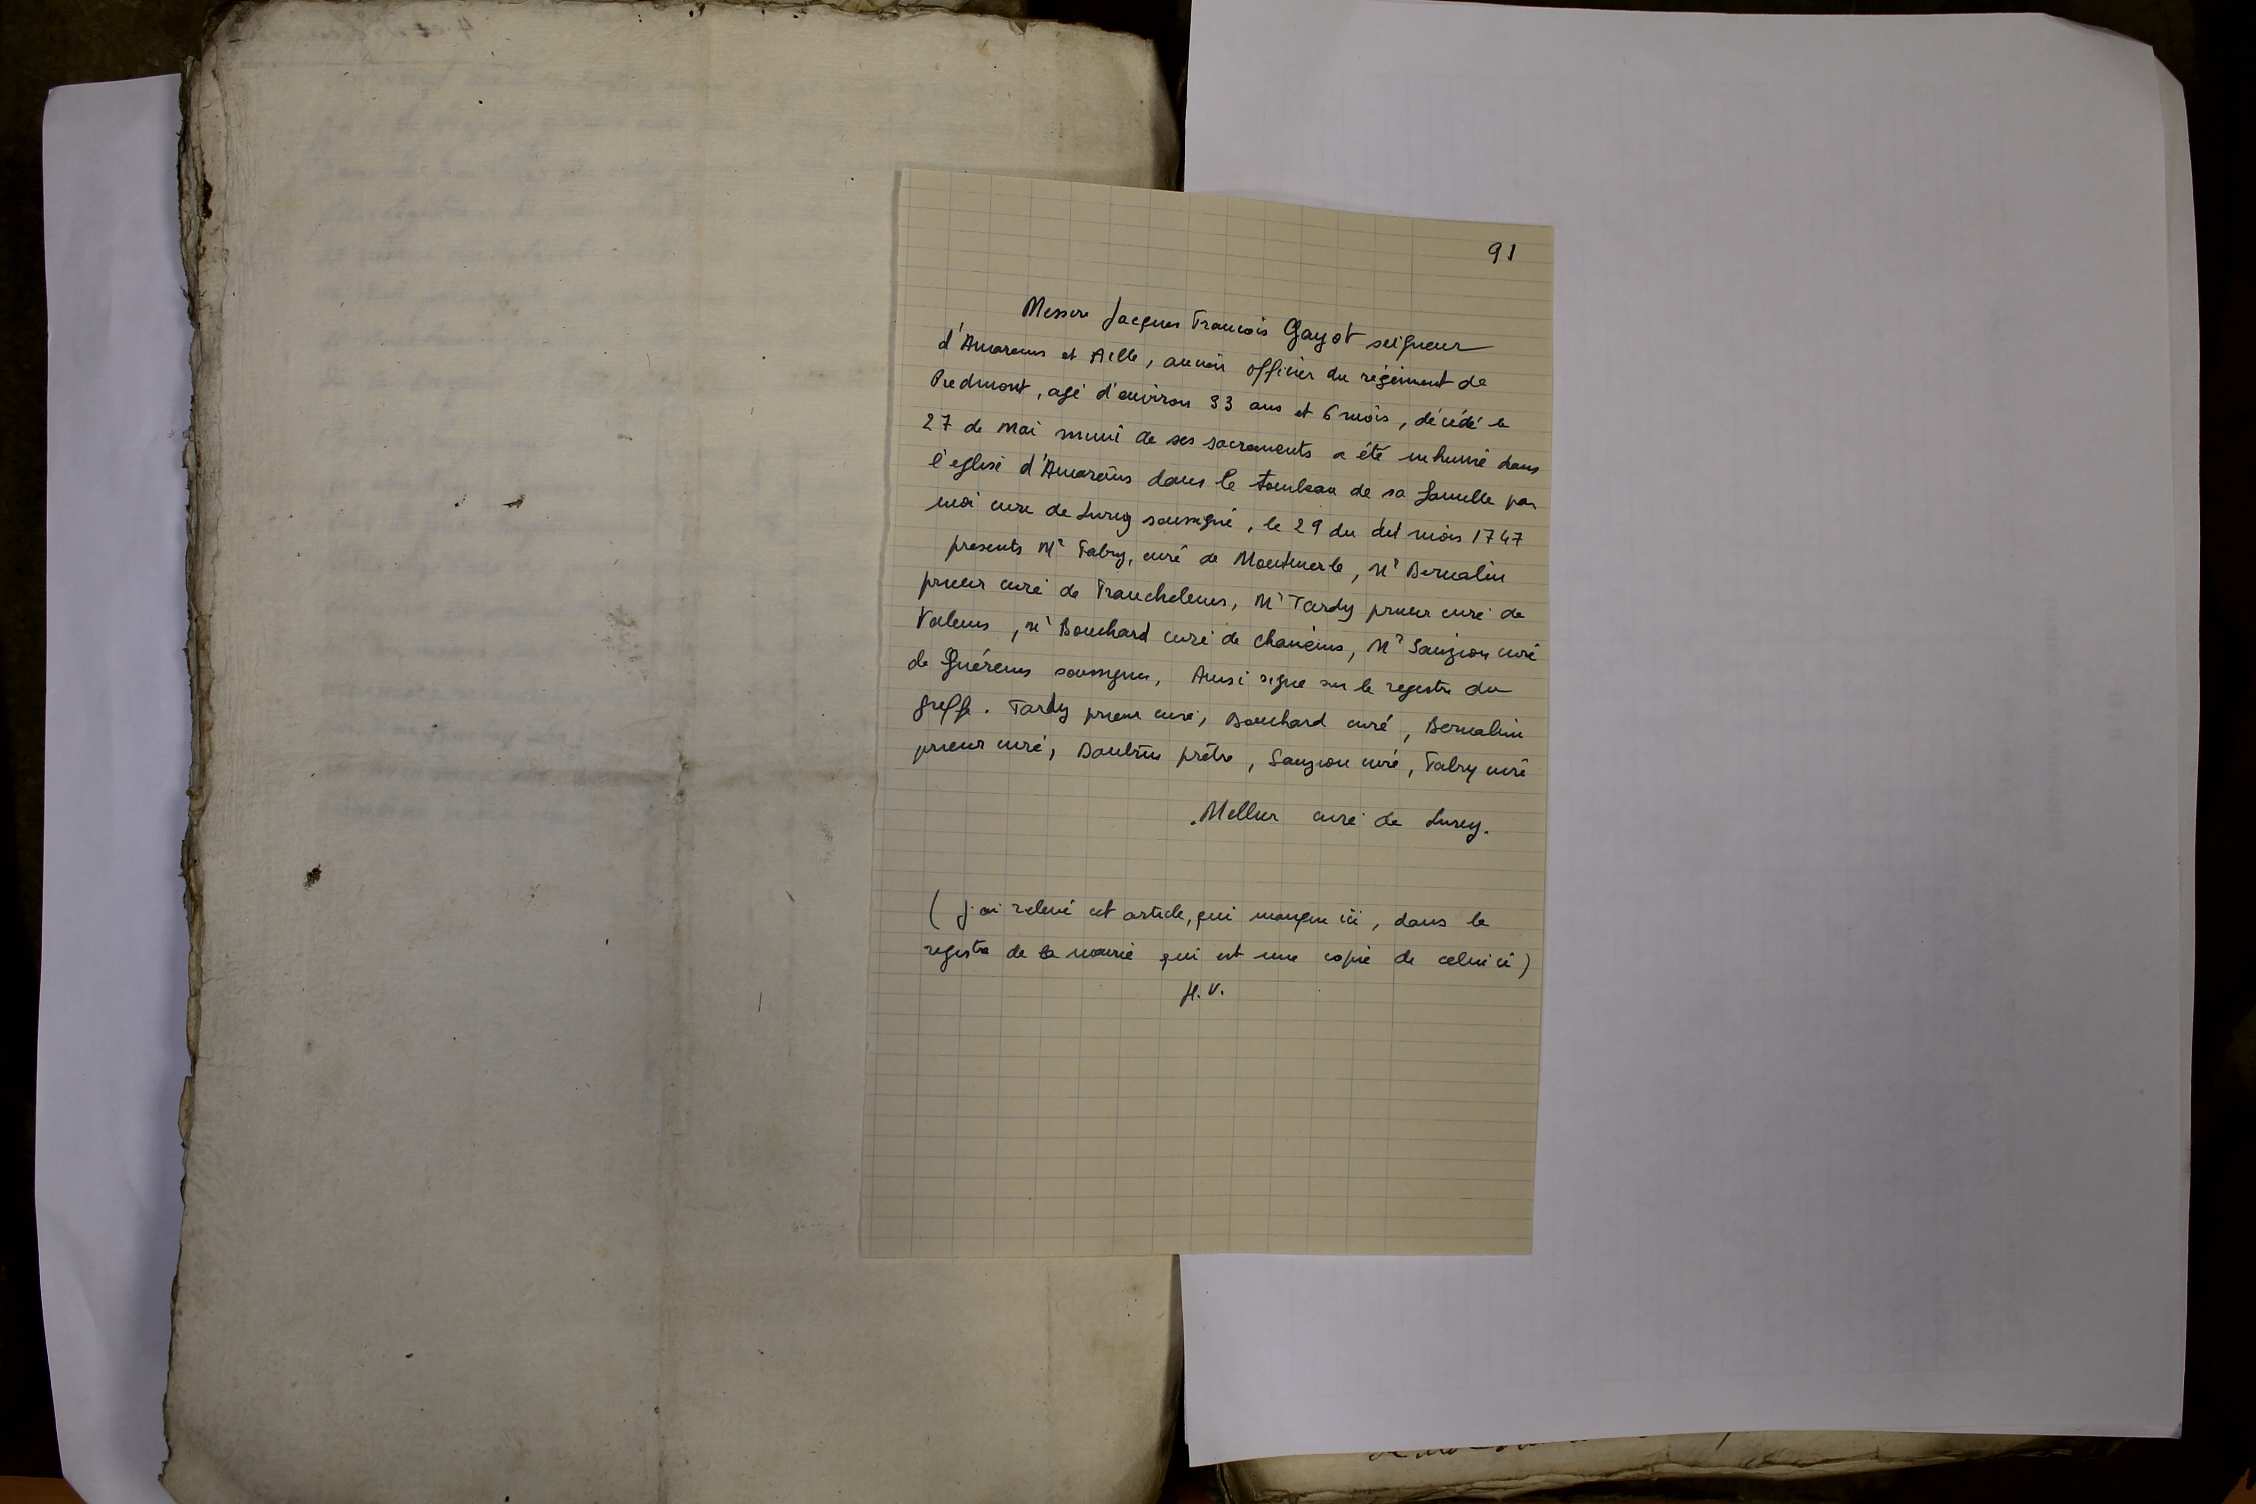 91
Messire Jacques Francois Gayot seigneur
d'Amareins et Aille, ancien officier du régiment de
Piedmont, agé d'environ 33 ans et 6 mois, décédé le
27 de mai muni de ses sacrements a été inhumé dans
l'eglise d'Amareins dans le tombeau de sa famille par
moi curé de Lurcy soussigné, le 29 du dit mois 1747
présents Mr Fabry, curé de Montmerle, Mr Bernalin
prieur curé de Francheleins, Mr Tardy prieur curé de
Valeins, Mr Bouchard curé de chaneins, Mr Sauzion curé
de Guéreins soussignés, Ainsi signé sur le registre du
greffe. Tardy prieur curé, Bouchard curé, Bernalin
prieur curé, prêtre, Sauzion curé, Fabry curé
Mellier curé de Lurcy.
(j'ai relevé cet article, qui manque ici, dans le
registre de la mairie qui est une copie de celui ci)
H. V.